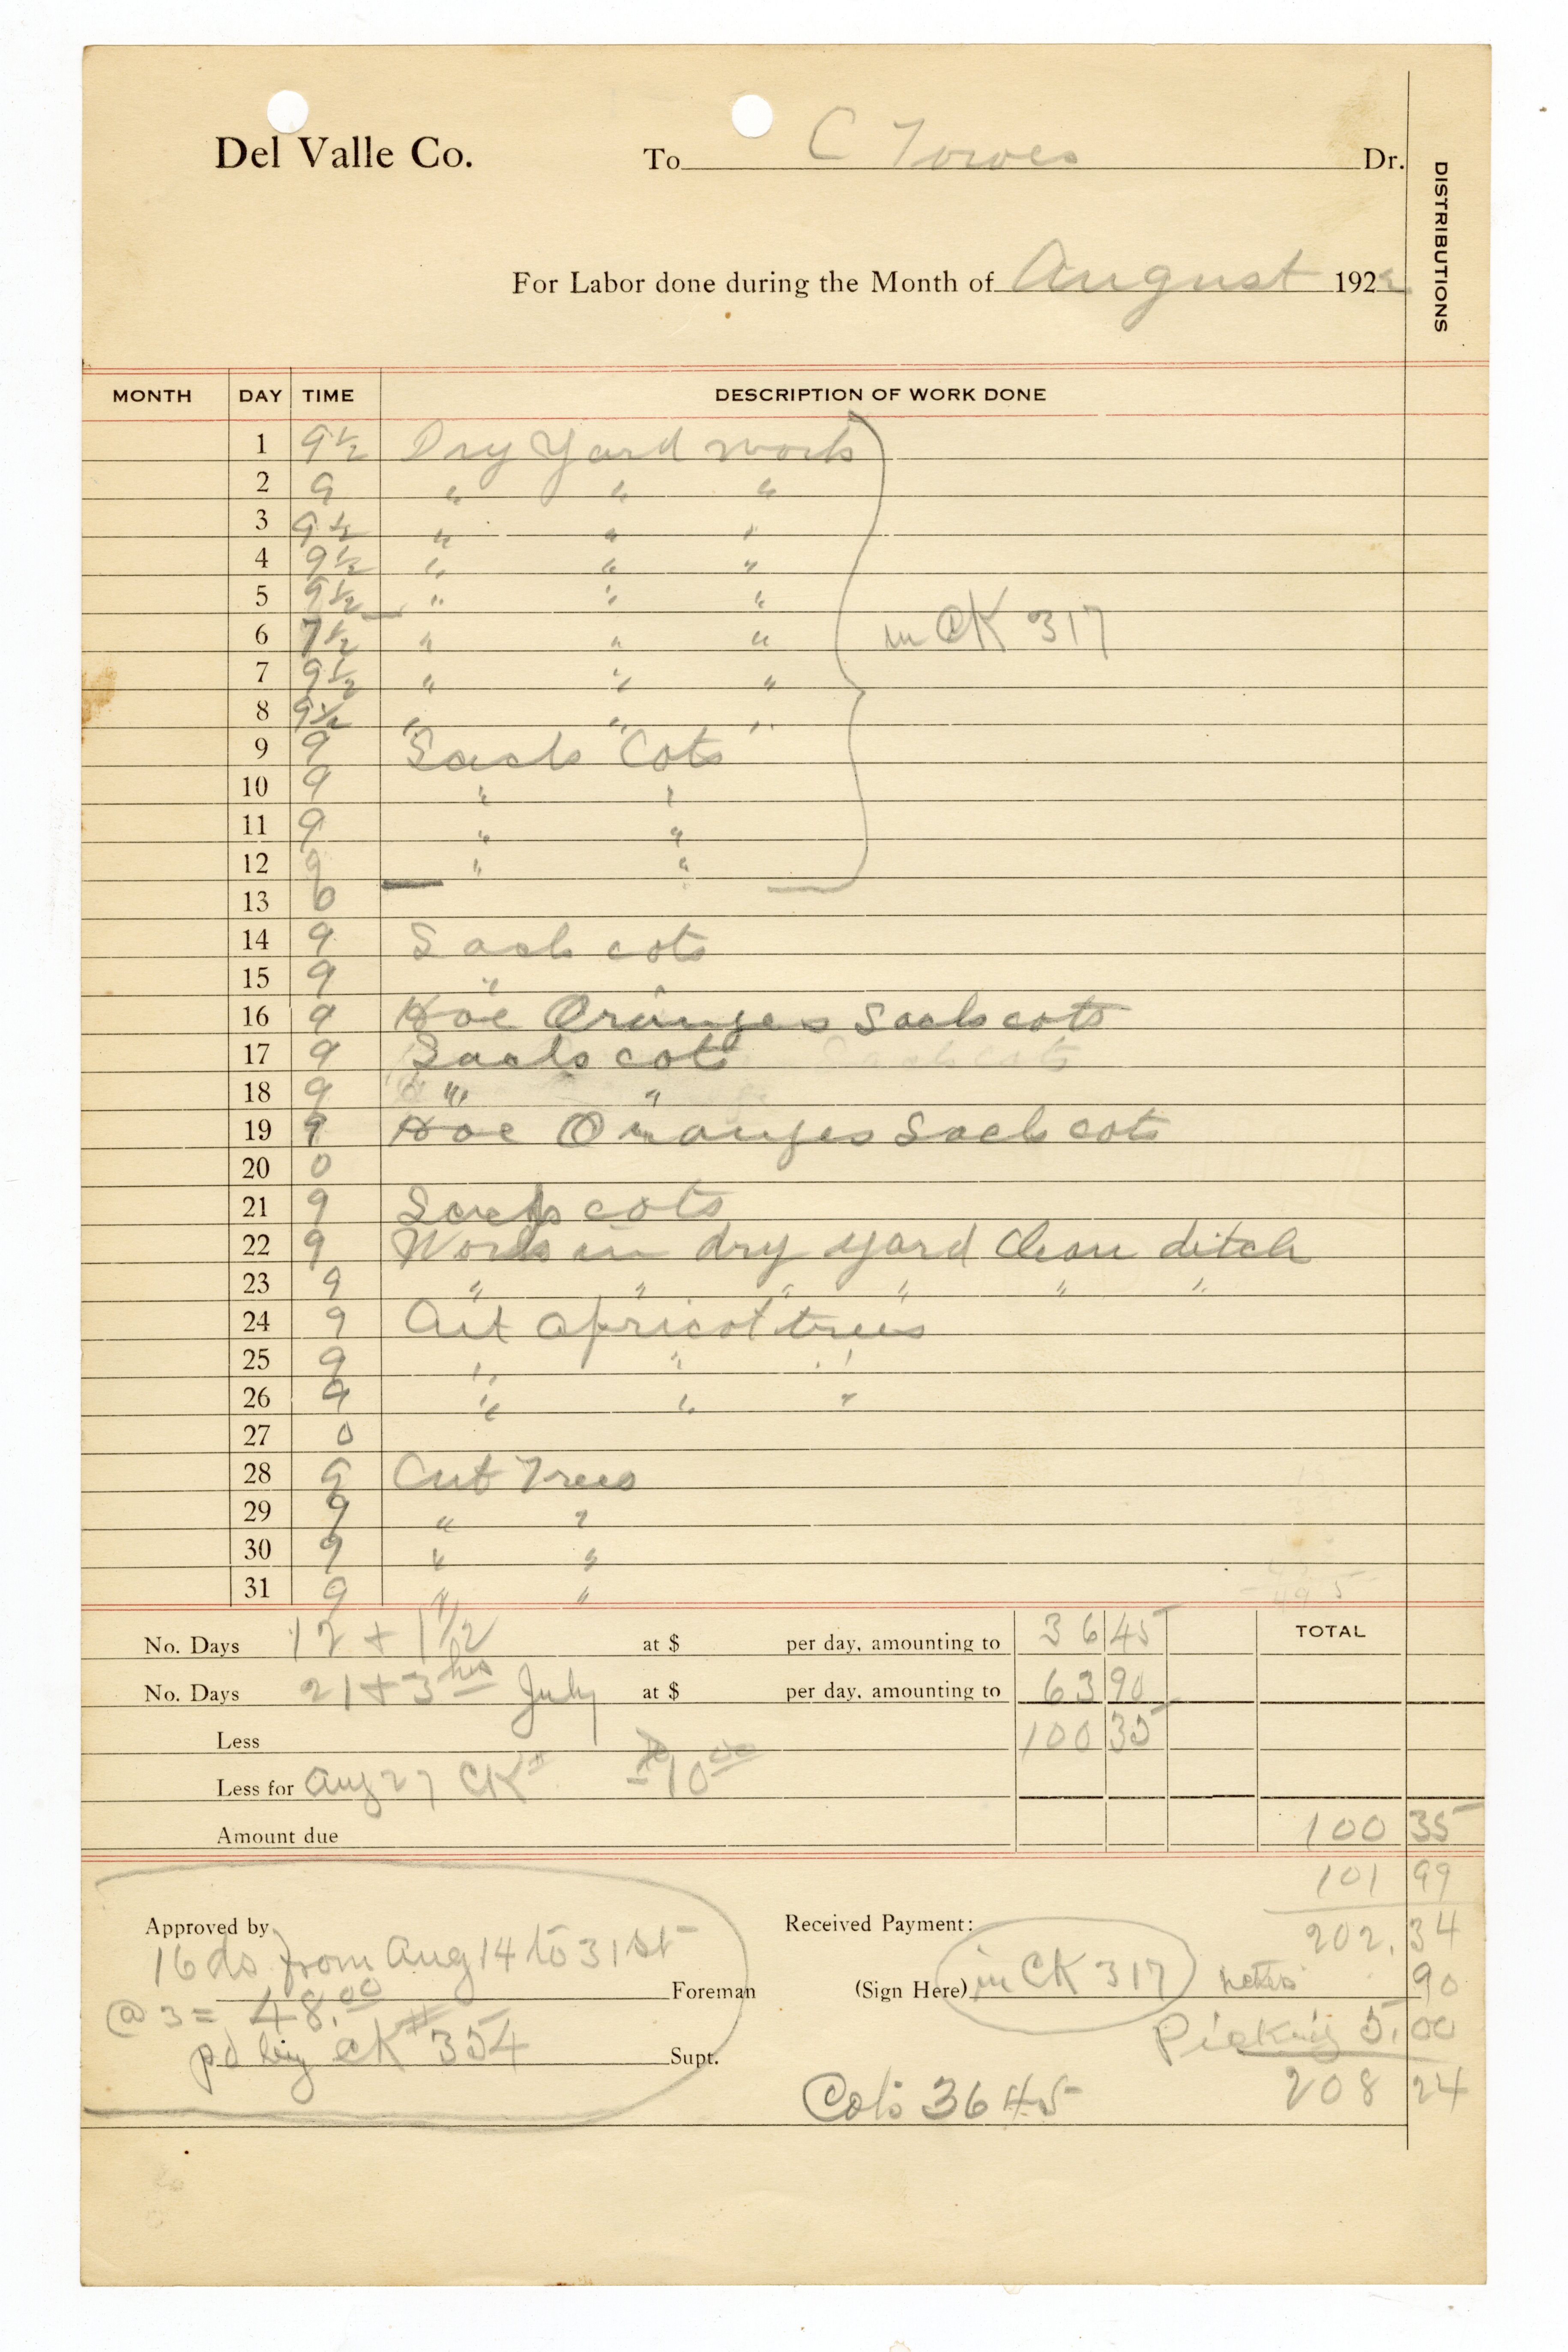 Del Valle Co. To C Torres Dr.
DISTRIBUTIONS
For Labor done during the Month of August 1922
MONTH DAY TIME DESCRIPTION OF WORK DONE
1 9 1/2 Dry Yard work
2 9 " " "
3 9 1/2 " " "
4 9 1/2 " " "
5 9 1/2 " " "
6 7 1/2 " " " in CK 317
7 9 1/2 " " "
8 9 1/2 " " "
9 9 Sack Cots
10 9 " "
11 9 " "
12 9 " "
13 0
14 9 Sack cots
15 9 " "
16 9 Hoe Oranges Sack cots
17 9 Sack cots
18 9 " "
19 9 Hoe Oranges Sack cots
20 0
21 9 Sack cots
22 9 Work in dry yard Clean ditch
23 9 " " " " " "
24 9 Cut apricot trees
25 9 " " "
26 9 " " "
27 0
28 9 Cut Trees
29 9 " "
30 9 " "
31 9 " "
No. Days 12 + 1 1/2 at $ per day, amounting to 36 45 TOTAL
No. Days 21 + 3 hrs July at $ per day, amounting to 63 90
Less 100 35
Less for Aug 27 CK # 10 00
Amount due 100 35
101 99
Approved by Received Payment: 202. 34
16 ds from Aug 14 to 31st
Foreman (Sign Here) in CK 317 90
@ 3 = 48.00
Picking 5. 00
pd by CK # 354 Supt.
Cots 36 45 208 24